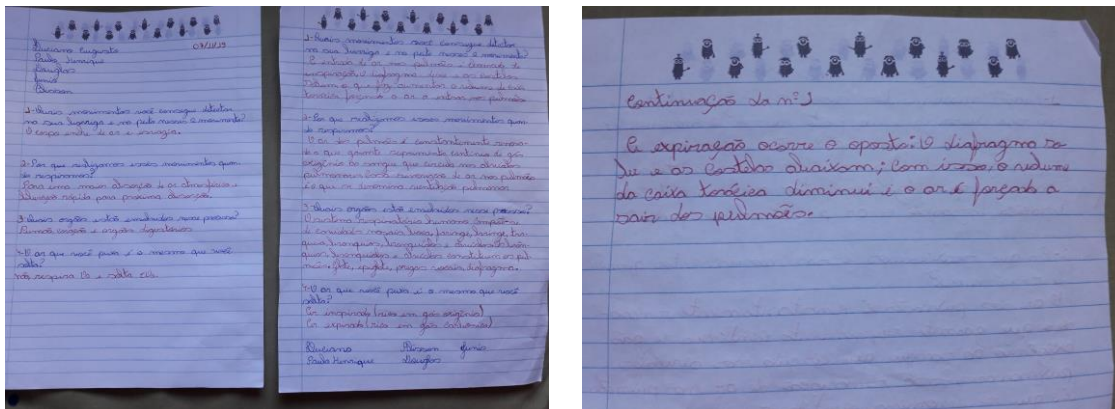 Luciano Augusto 07/11/19
Paulo Henrique
Douglas
Junio
1-Quais movimentos você consegue detectar
na sua barriga e no peito nesse movimento?
O corpo enche de ar e
2-Por que realizamos esses movimentos quan-
do respiramos?
Para uma maior absorção de ar atmosférico e
3-Quais orgãos estão envolvidos nesse processo?
e orgãos digestórios
4-O ar que você puxa é o mesmo que você
solta?
nós respira O2 e solta CO2.
1-Quais movimentos você consegue detectar
na sua barriga e no peito nesse movimento?
A entrada de ar nos pulmões é chamada de
inspiração. O diafragma e as costelas
o que faz aumentar o volume da caixa
torácica forçando o ar a entrar nos pulmões
2-Por que realizamos esses movimentos quan-
do respiramos?
O ar dos pulmões é constantemente renova-
do o que garante suprimento contínuo de gás
oxigênio ao sangue que circula nos alvéolos
pulmonares. Essa renovação de ar nos pulmões
é o que se denomina ventilação pulmonar
3-Quais orgãos estão envolvidos nesse processo?
O sistema respiratório humano
de cavidades nasais, boca, faringe, laringe, tra-
queia, bronquios, bronquiolos e alvéolos.
bronquiolos e alvéolos constituem os pul-
mões. epiglote, pregas vocais, diafragma.
4-O ar que você puxa é o mesmo que você
solta?
Ar inspirado (rico em gás oxigênio)
Ar expirado (rico em gás carbônico)
Luciano Junio
Paulo Henrique Douglas
Continuação da nº1
A expiração ocorre o oposto: O diafragma so-
be e as costelas abaixam; com isso, o volume
da caixa torácica diminui e o ar é forçado a
sair dos pulmões.